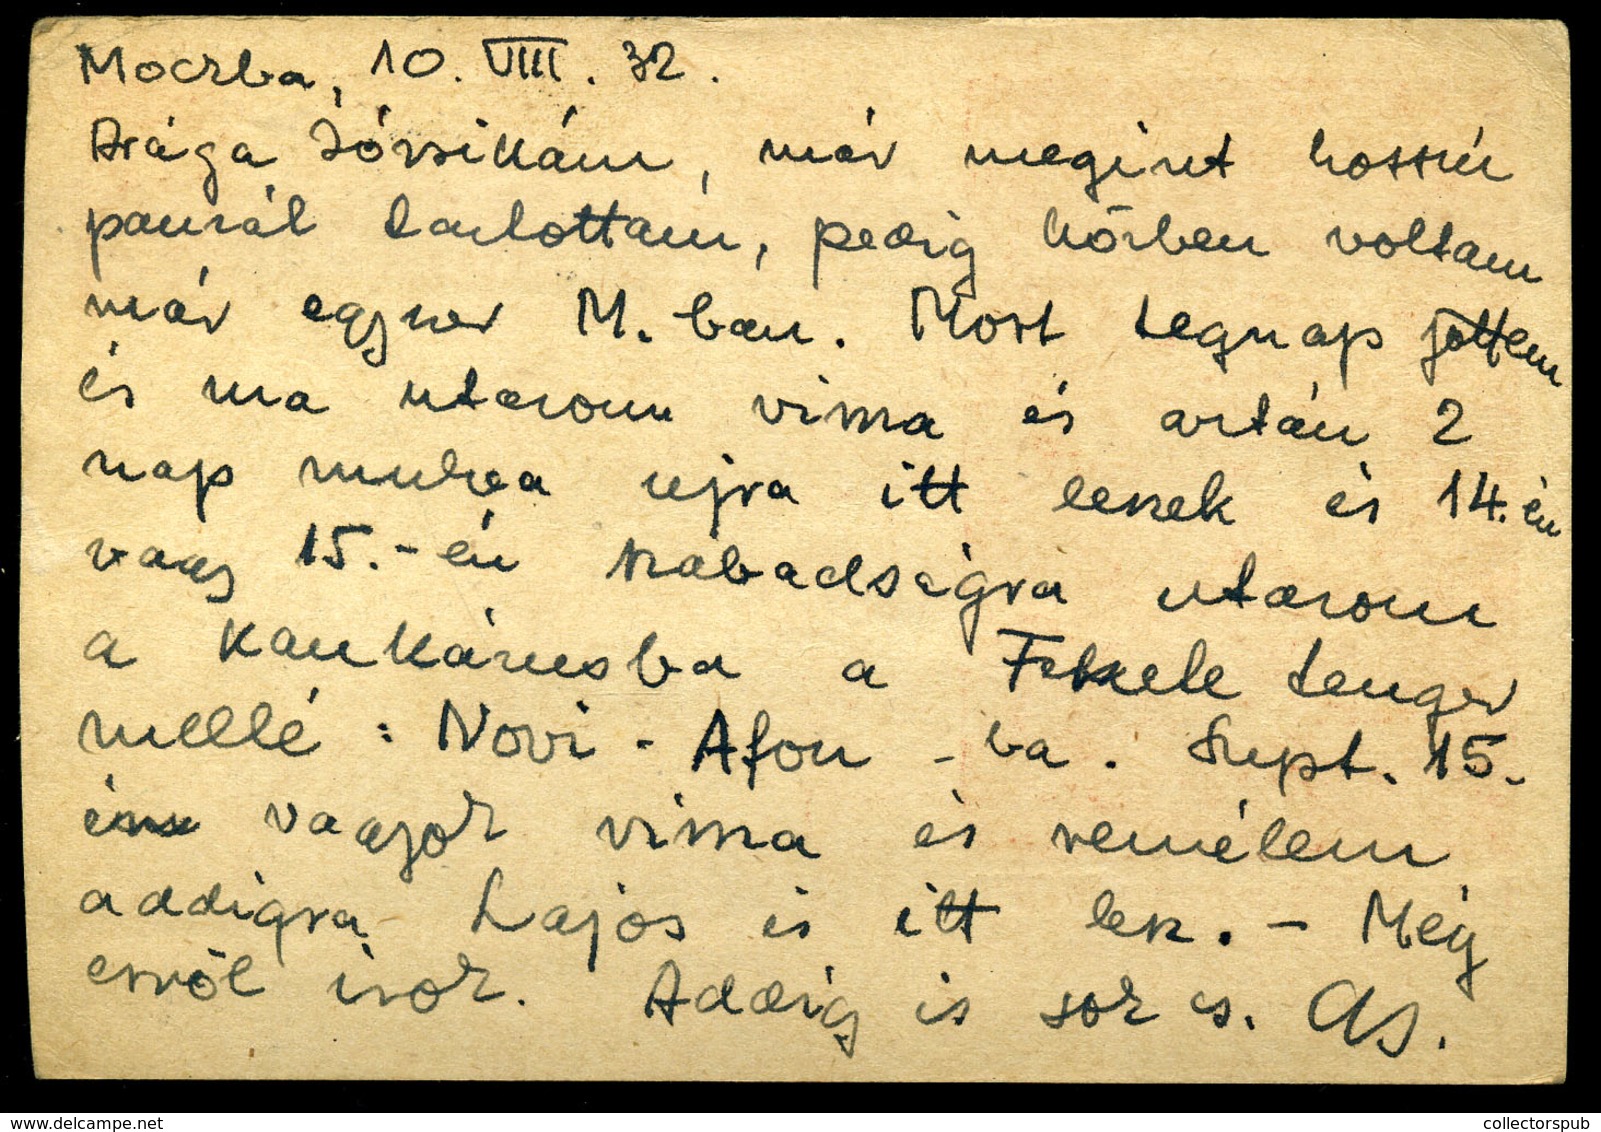 Moczkba, 10. VIII. 32.
Drága Zórzsikám, már megint hosszú
pauzát tartottam, pedig közben voltam
már egyszer M.ban. Most tegnap jöttem
és ma utazom vissza és aztán 2
nap mulva ujra itt leszek és 14.én
vagy 15.-én szabadságra utazom
a Kaukázusba a Fekete tenger
mellé: Novi-Afon-ba. Szept. 15.
én vagyok vissza és remélem
addigra Lajos is itt lesz. - Még
erről irok. Addig is sok cs.
collectorspub